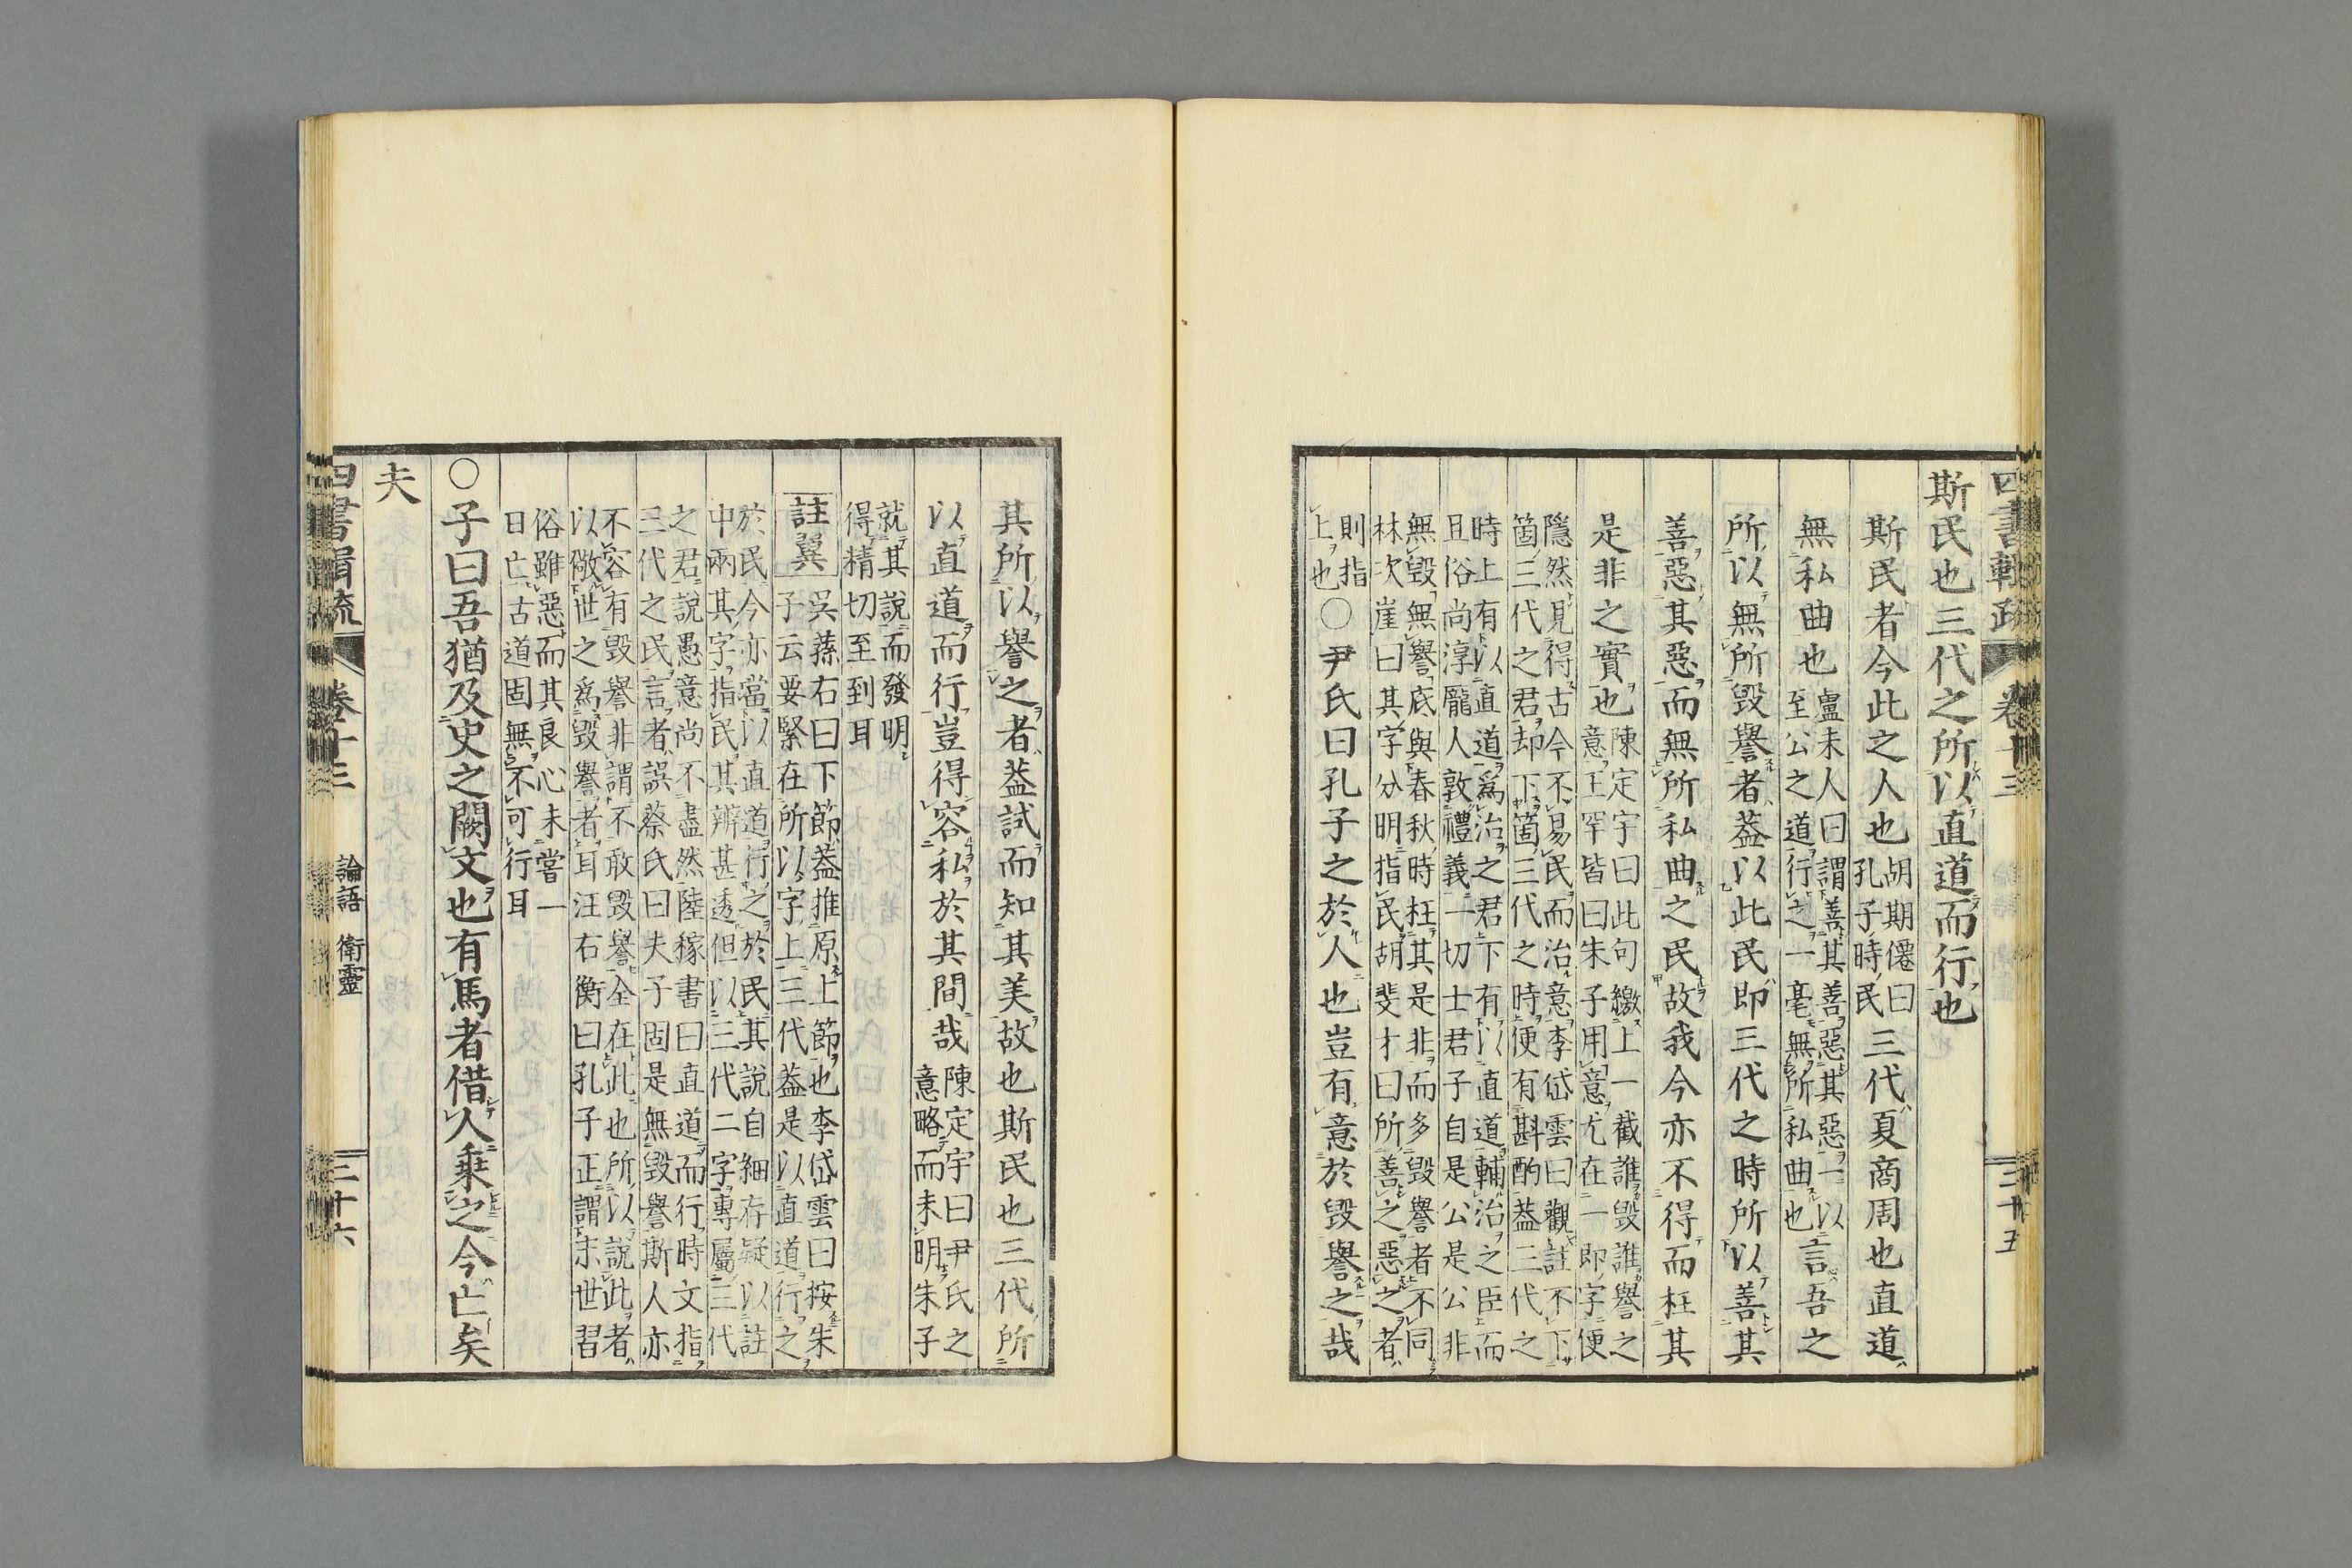 斯民也三代之所以直道而行也
斯民者今此之人也
胡期僊曰
孔子時民
三代夏商周也直道
無私曲也
盧未人曰謂善其善惡其惡一以
至公之道行之一毫無所私曲也
言吾之
所以無所毀譽者葢以此民即三代之時所以善其
善惡其惡而無所私曲之民故我今亦不得而枉其
是非之實也
陳定宇曰此句繳上一截誰毀誰譽之
意王罕皆曰朱子用意尤在一即字便
隱然見得古今不易民而治意李岱雲曰觀註不下
箇三代之君却下箇三代之時便有斟酌葢三代之
時上有以直道爲治之君下有以直道輔治之臣而
且俗尚淳龎人敦禮義一切士君子自是公是公非
無毀無譽底與春秋時枉其是非而多毀譽者不同
林次崖曰其字分明指民胡斐才曰所善之惡之者
則指
上也
○尹氏曰孔子之於人也豈有意於毀譽之哉
四書輯疏 卷十三 三十五
其所以譽之者葢試而知其美故也斯民也三代所
以直道而行豈得容私於其間哉
陳定宇曰尹氏之
意略而未明朱子
就其說而發明
得精切至到耳
註翼
吳蓀右曰下節葢推原上節也李岱雲曰按朱
子云要緊在所以字上三代葢是以直道行之
於民今亦當以直道行之於民其說自細存疑以註
中兩其字指民其辨甚透但以三代二字專屬三代
之君說愚意尚不盡然陸稼書曰直道而行時文指
三代之民言者誤蔡氏曰夫子固是無毀譽斯人亦
不容有毀譽非謂不敢毀譽全在此也所以說此者
以儆世之爲毀譽者耳汪右衡曰孔子正謂末世習
俗雖惡而其良心未嘗一
日亡古道固無不可行耳
○子曰吾猶及史之闕文也有馬者借人乘之今亡矣
夫
四書輯疏 卷十三 論語 衛靈 三十六